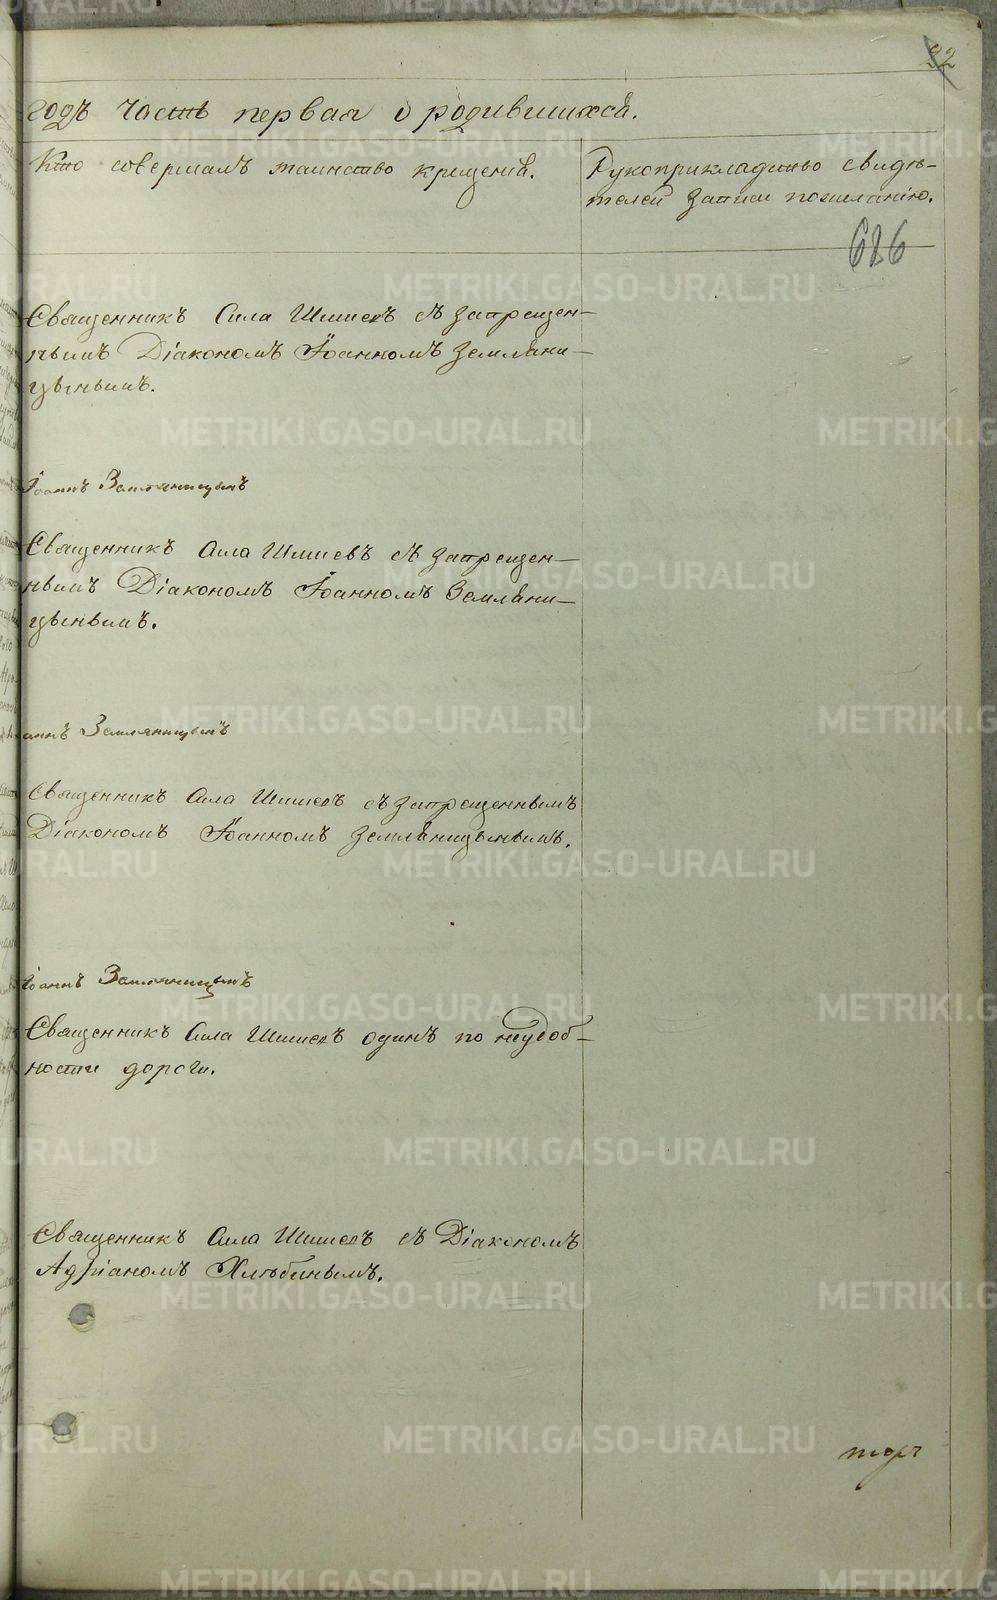 22
годъ часть первая о родившихся.
Кто совершалъ таинство крещенія.
Рукоприкладство свидѣ-
телей записи по желанію.
686
Священникъ Сила Шишевъ съ запрещен-
нымъ Діакономъ Іоанномъ Земляни-
цынымъ.
Іоаннъ Земляницынъ
Священникъ Сила Шишевъ съ запрещен-
нымъ Діакономъ Іоанномъ Земляни-
цынымъ.
аннъ Земляницынъ
Священникъ Сила Шишевъ съ запрещеннымъ
Діакономъ Іоанномъ Земляницынымъ.
Іоаннъ Земляницынъ
Священникъ Сила Шишевъ одинъ по неудоб-
ности дороги.
Священникъ Сила Шишевъ съ Діакономъ
Адріаномъ Хлѣбинымъ.
METRIKI.GASO-URAL.RU